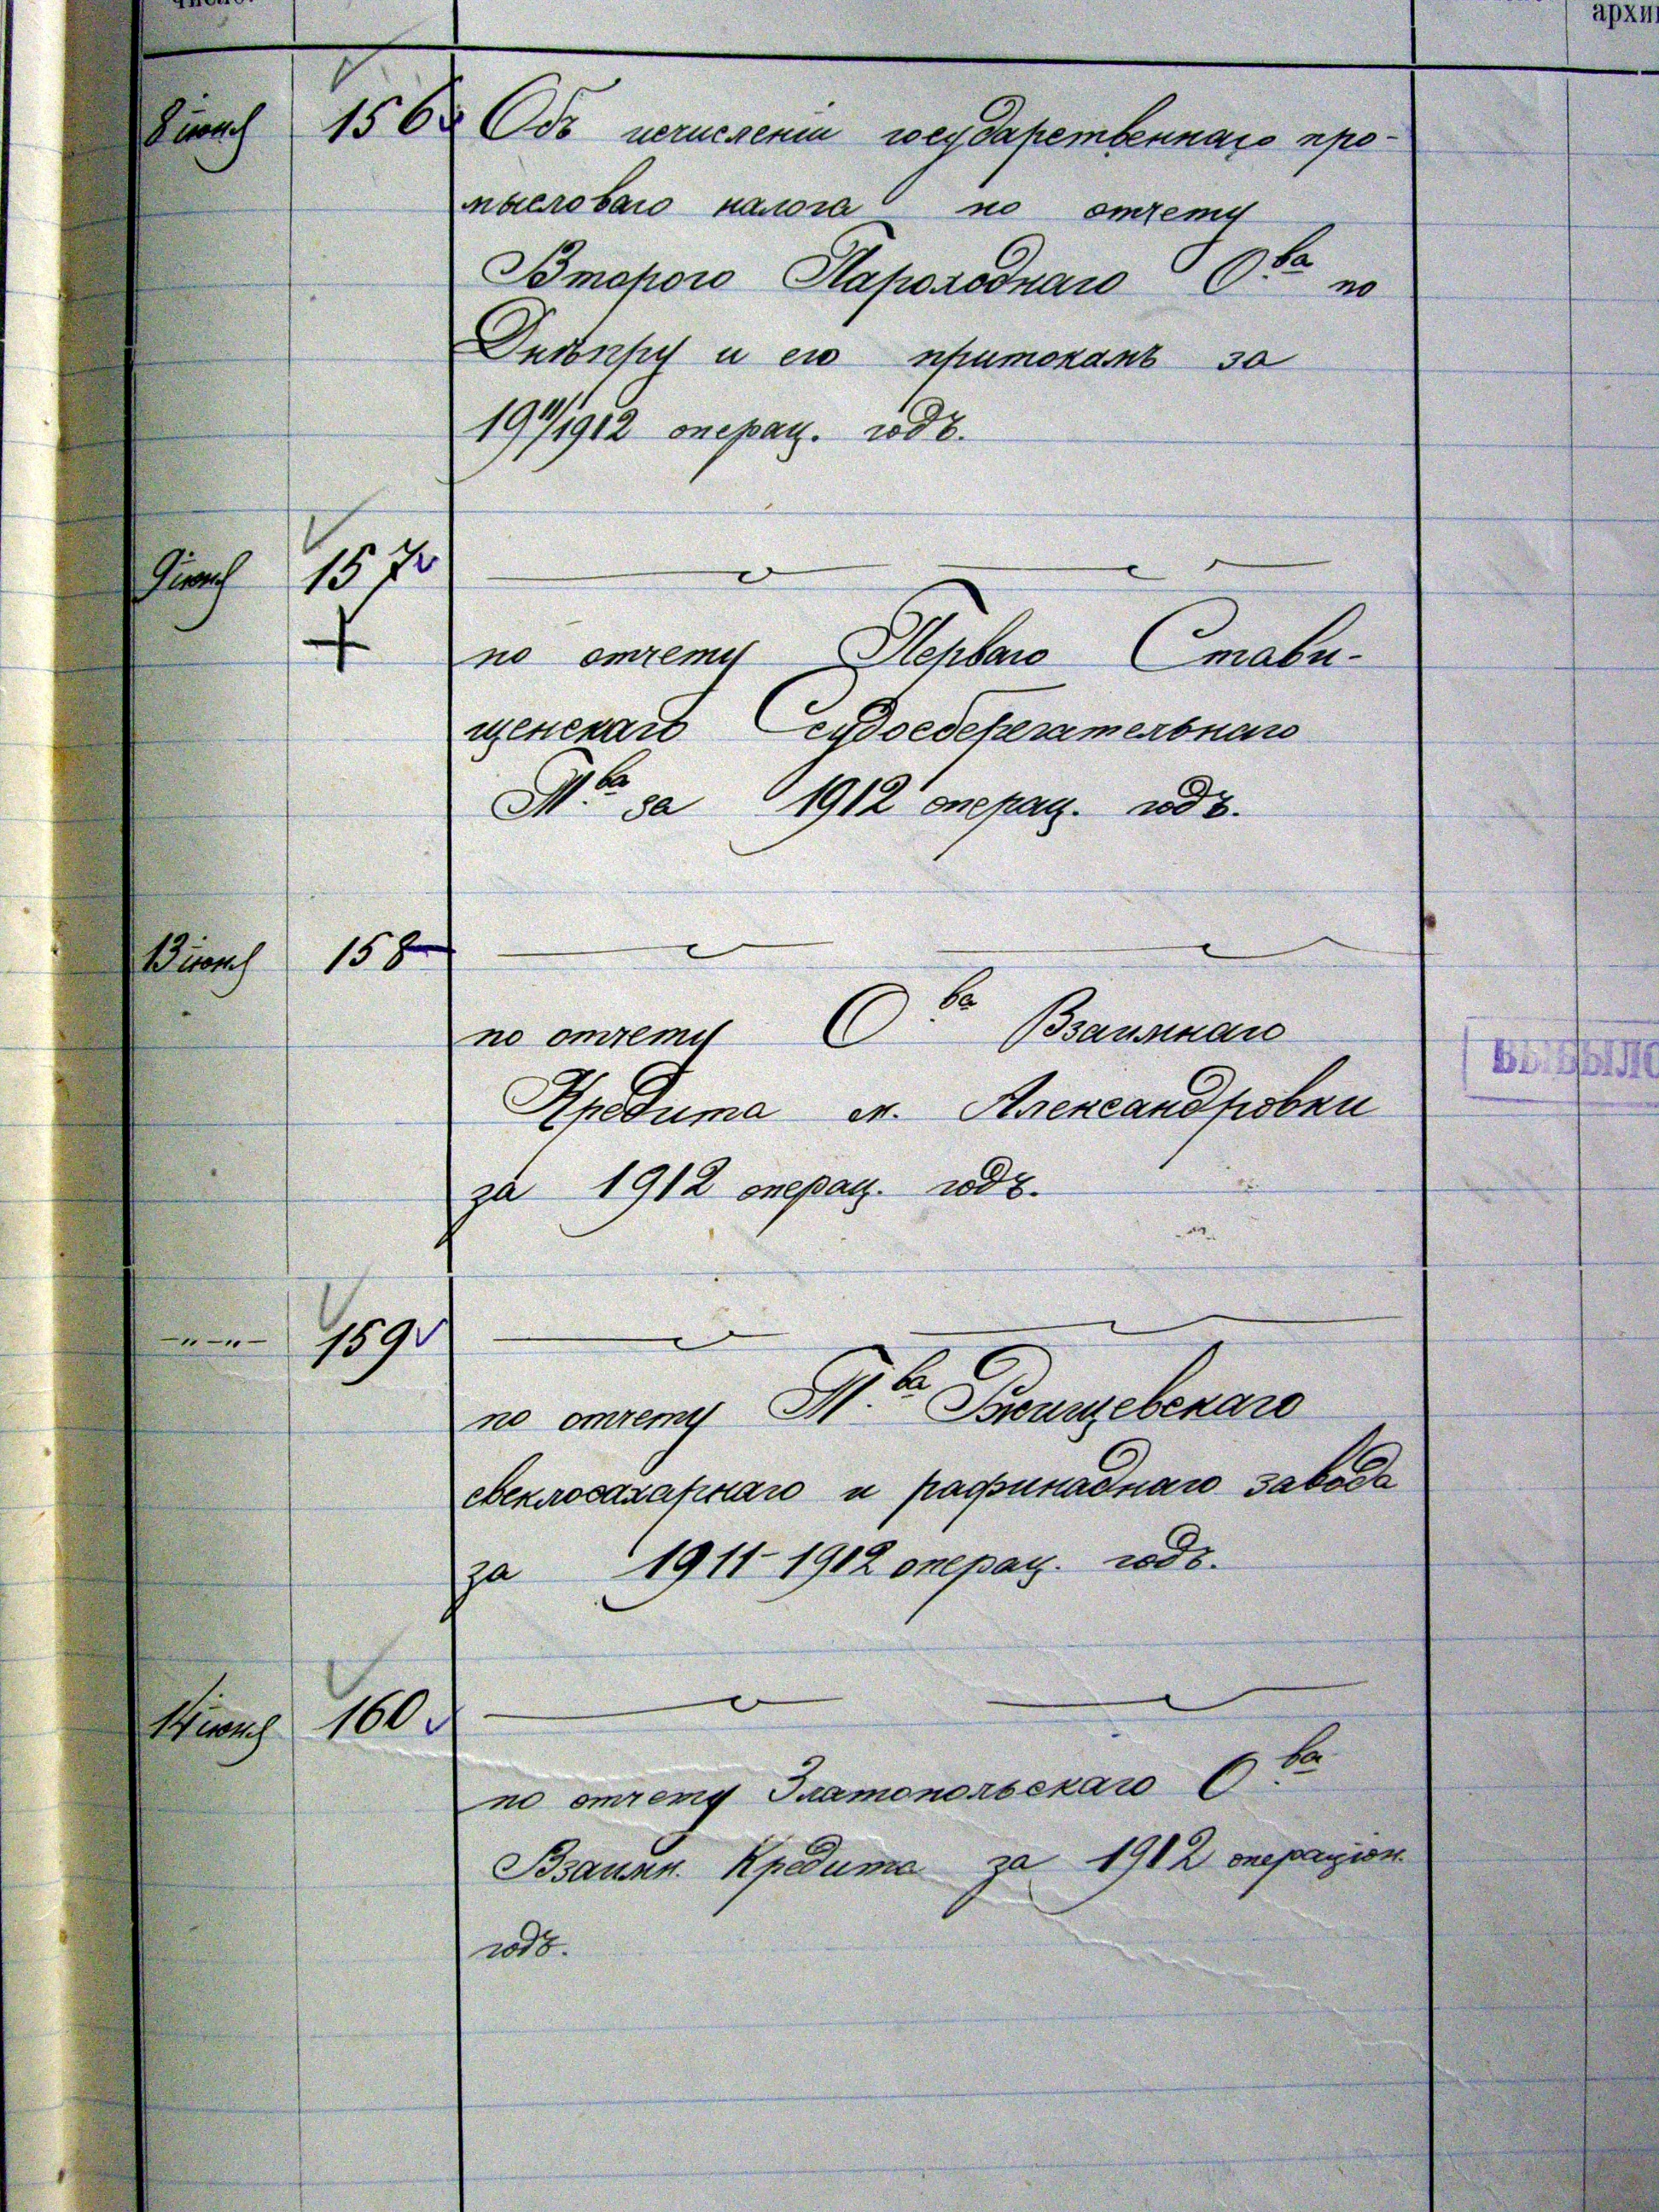 число.
архи
8 іюня 156 Объ исчисленіи государственнаго про-
мысловаго налога по отчету
Второго Пароходнаго О-ва по
Днѣпру и его притокамъ за
1911/1912 операц. годъ.
9 іюня 157
по отчету Перваго Стави-
щенскаго Ссудосберегательнаго
Т-ва за 1912 операц. годъ.
13 іюня 158
по отчету О-ва Взаимнаго
Кредита м. Александровки
за 1912 операц. годъ.
-"-"- 159
по отчету Т-ва
свеклосахарнаго и рафинаднаго завода
за 1911-1912 операц. годъ.
14 іюня 160
по отчету Златопольскаго О-ва
Взаимн. Кредита за 1912 операціон.
годъ.
ВЫБЫЛО